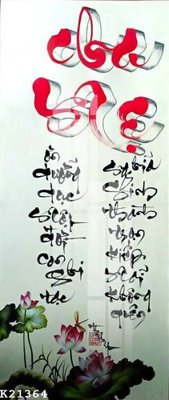 cha
Mẹ
ơn dưỡng dục suốt đời con ghi tạc
Sinh thành trọn kiếp không quên
K21364